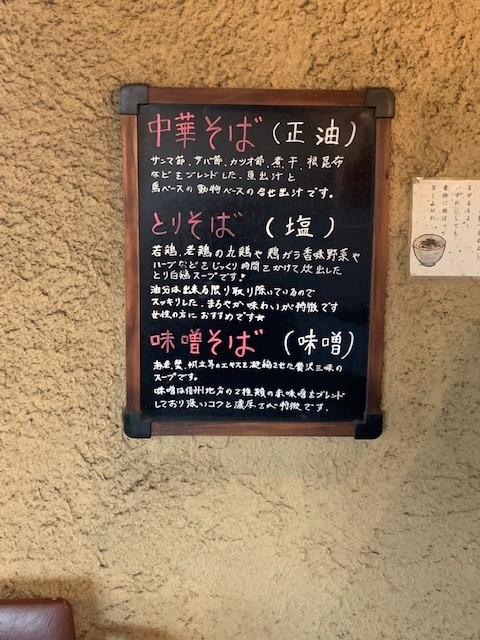 中華そば (正油)
サンマ節、サバ節、カツオ節、煮干、根昆布
などをブレンドした、魚出汁と
鳥ベースの動物ベースの合せ出汁です。
とりそば (塩)
若鶏、老鶏の丸鶏や鶏ガラ香味野菜や
ハーブなどをじっくり時間をかけて炊出した
とり白湯スープです!
油分は出来る限り取り除いているので
スッキリした、まろやか味わいが特徴です
女性の方におすすめです★
味噌そば (味噌)
海老、蟹、帆立等のエキスを凝縮させた贅沢三昧の
スープです。
味噌は信州地方の2種類の赤味噌をブレンド
しており深いコクと濃厚さが特徴です.